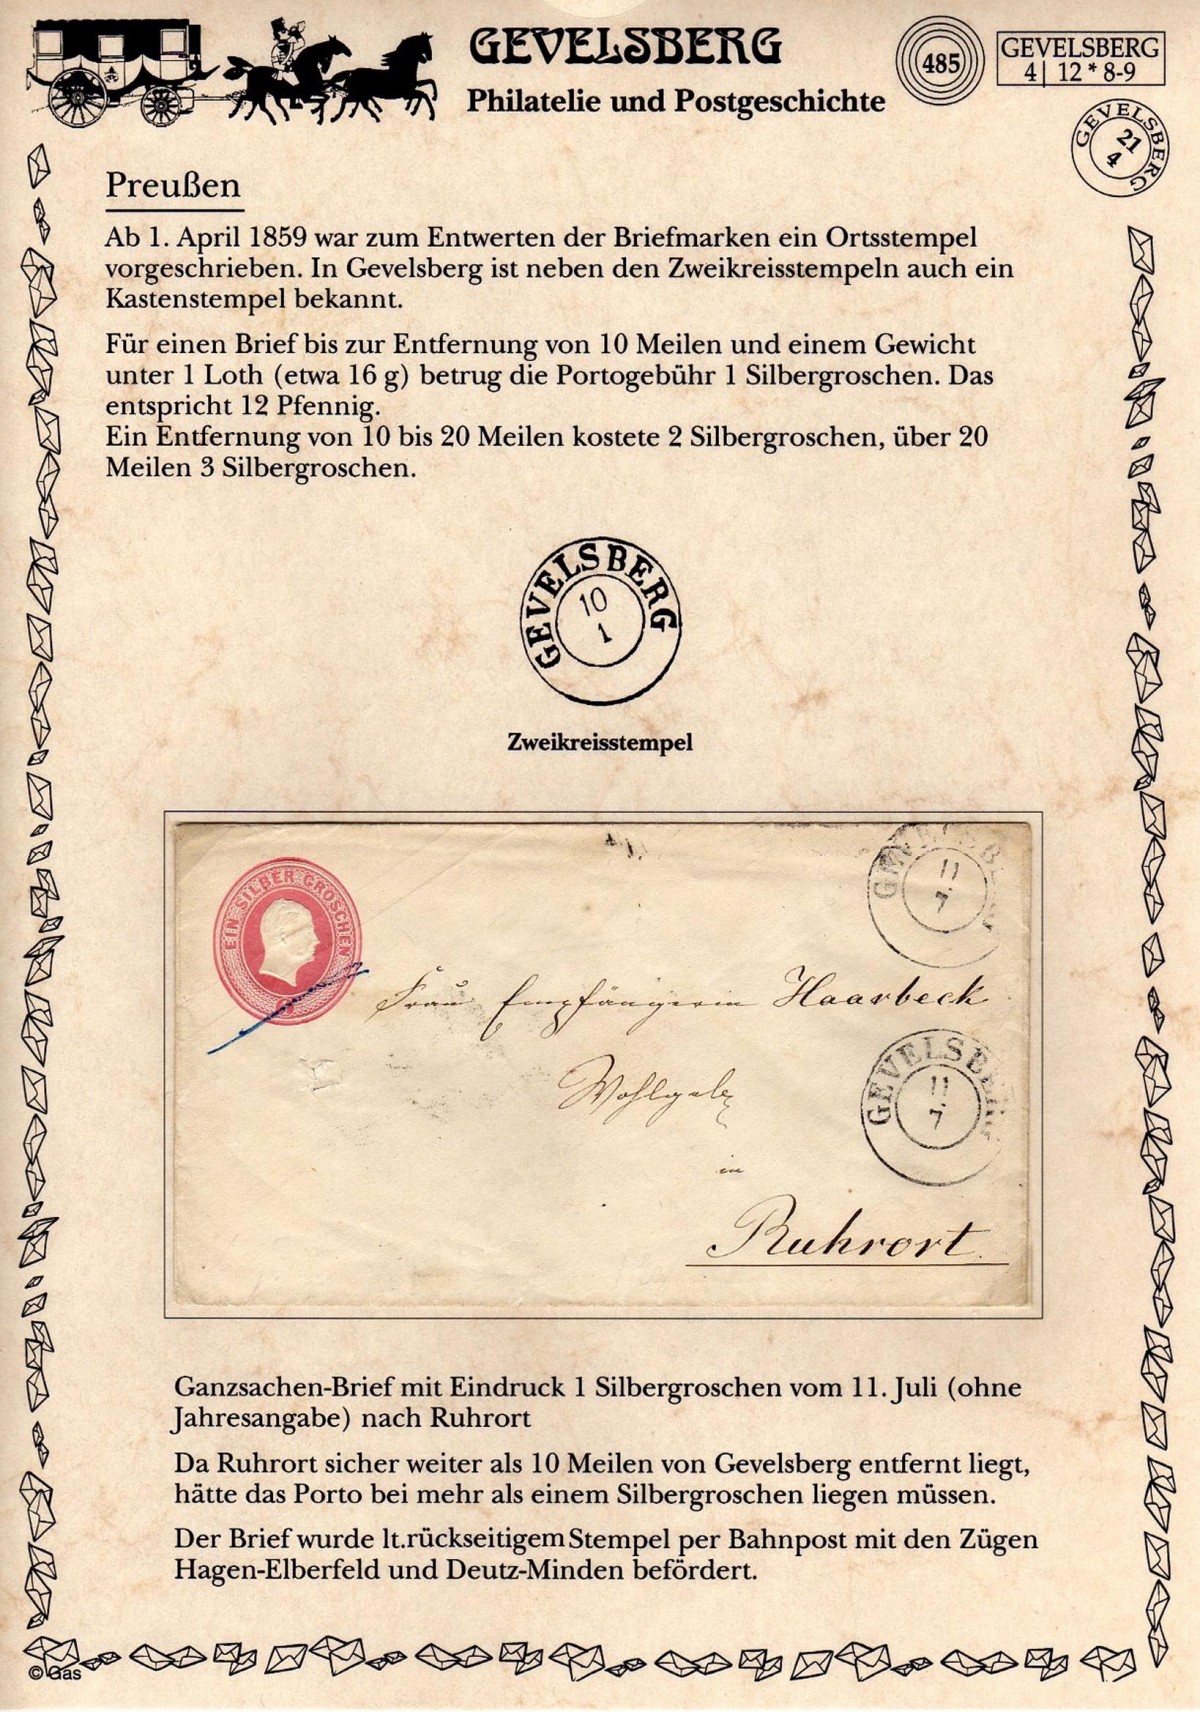 GEVELSBERG
Philatelie und Postgeschichte
485
GEVELSBERG
4| 12 * 8-9
GEVELSBERG
21
4
Preußen
Ab 1. April 1859 war zum Entwerten der Briefmarken ein Ortsstempel
vorgeschrieben. In Gevelsberg ist neben den Zweikreisstempeln auch ein
Kastenstempel bekannt.
Für einen Brief bis zur Entfernung von 10 Meilen und einem Gewicht
unter 1 Loth (etwa 16 g) betrug die Portogebühr 1 Silbergroschen. Das
entspricht 12 Pfennig.
Ein Entfernung von 10 bis 20 Meilen kostete 2 Silbergroschen, über 20
Meilen 3 Silbergroschen.
GEVELSBERG
10
1
Zweikreisstempel
EIN SILBER GROSCHEN
GEVELSBERG
11
7
Frau Empfängerin Haarbeck
GEVELSBERG
11
7
in
Ruhrort
Ganzsachen-Brief mit Eindruck 1 Silbergroschen vom 11. Juli (ohne
Jahresangabe) nach Ruhrort
Da Ruhrort sicher weiter als 10 Meilen von Gevelsberg entfernt liegt,
hätte das Porto bei mehr als einem Silbergroschen liegen müssen.
Der Brief wurde lt.rückseitigem Stempel per Bahnpost mit den Zügen
Hagen-Elberfeld und Deutz-Minden befördert.
© Gas